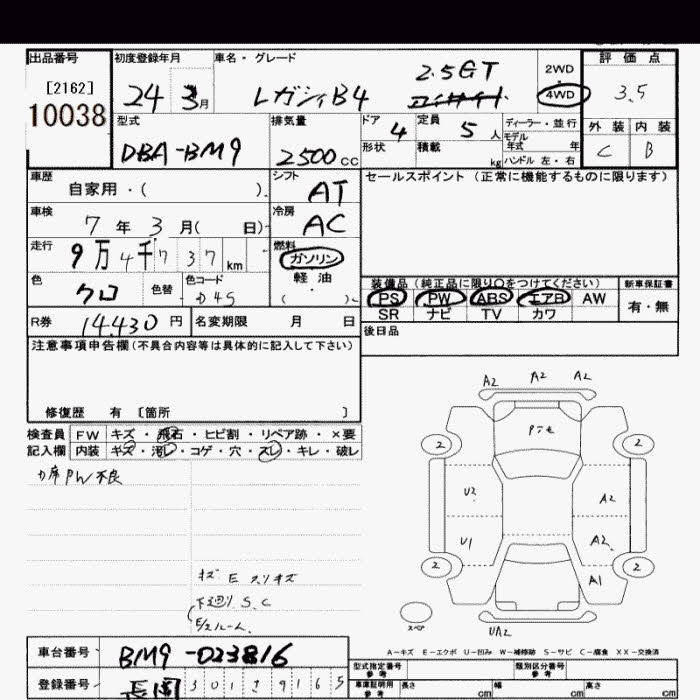 出品番号 初度登録年月 車名・グレード 評価点
[2162] 2.5GT 2WD
10038 24 3月 レガシィB4 4WD 3.5
型式 排気量 ドア 4 定員 5 人 ディーラー・並行 外装 内装
モデル年式 年
DBA-BM9 2500cc 形状 積載 kg ハンドル 左・右 C B
車歴 シフト セールスポイント(正常に機能するものに限ります)
自家用・( ) AT
車検 冷房
7年3月( 日) AC
走行 燃料
9万4千737km ガソリン
色 色替 色コード 軽油 装備品(純正品に限り○をつけてください) 新車保証書
クロ D4S ( ) PS PW ABS エアB AW 有・無
SR ナビ TV カワ
R券 14.430円 名変期限 月 日
後日品
注意事項申告欄(不具合内容等は具体的に記入して下さい)
修復歴 有 〔箇所 〕
検査員 FW キズ・飛石・ヒビ割・リペア跡・×要
記入欄 内装 キズ・汚レ・コゲ・穴・スレ・キレ・破レ
PW不良
キズ E スリキズ
下廻り S.C
E/Gルーム
A2 A2 A2
2 2
U2 A2
U1 A2
2 A1 2
スペア
UA2
A-キズ E-エクボ U-凹み W-補修跡 S-サビ C-腐食 XX-交換済
車台番号 BM9-023816
型式指定番号 参考 類別区分番号 参考
登録番号 長岡 301 9165
車庫証明用 参考 長さ cm 幅 cm 高さ cm